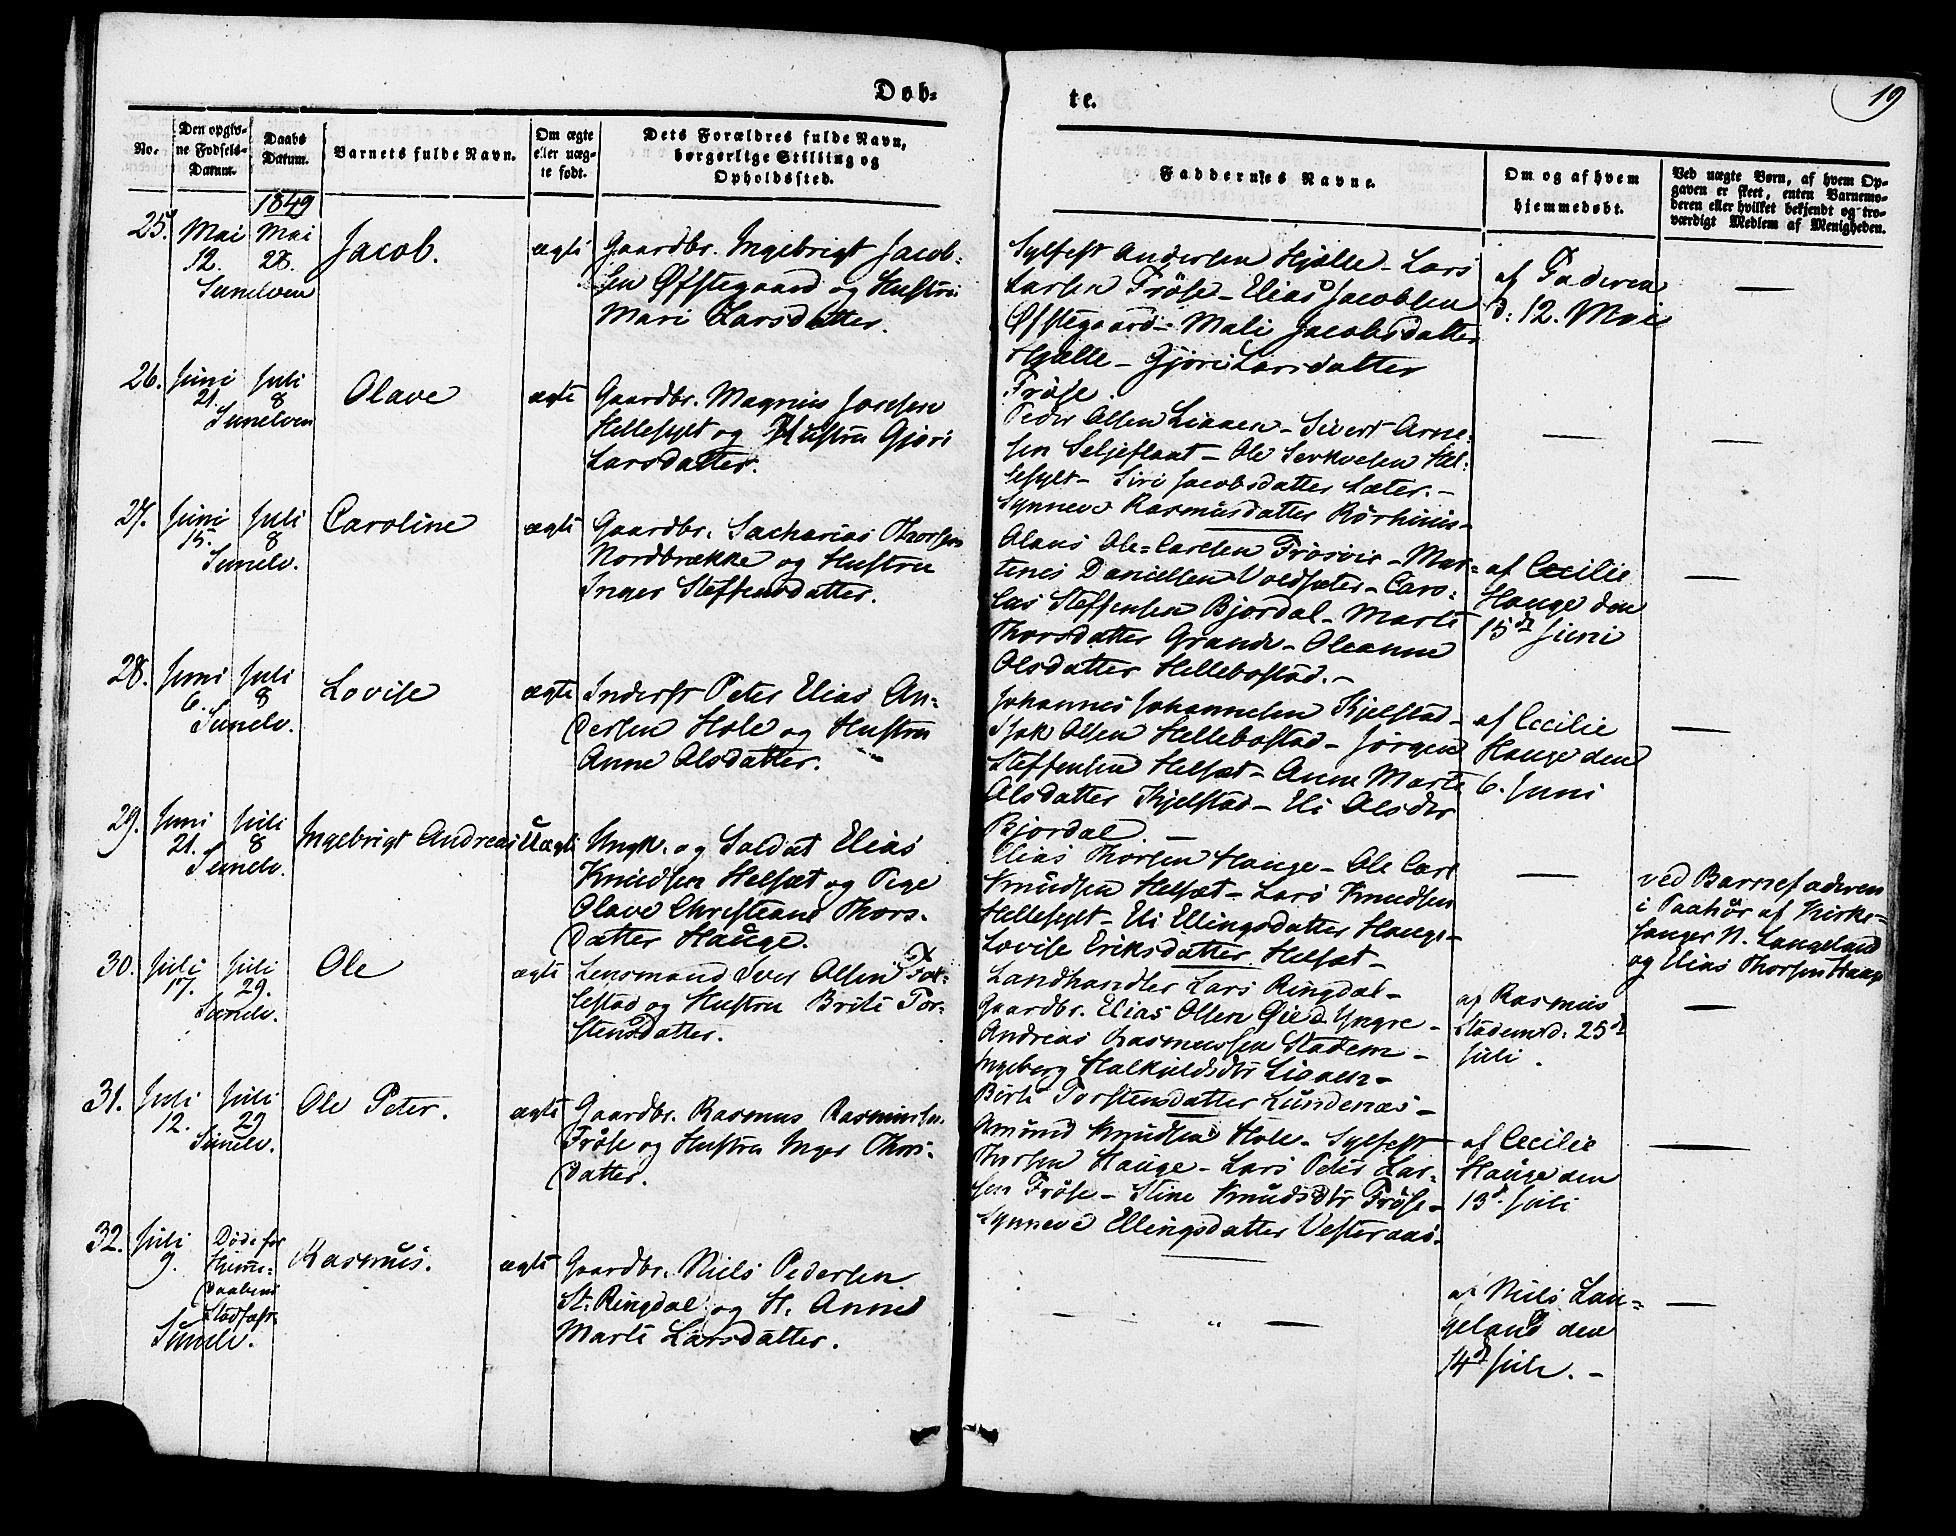 Døb-
te.
19
No.
Den opgiv-
ne Fødsels-
Datum.
Daabs
Datum.
Barnets fulde Navn.
Om ægte
eller uæg-
te født.
Dets Forældres fulde Navn,
borgerlige Stilling og
Opholdssted.
Faddernes Navne.
Om og af hvem
hjemmedøbt.
Ved uægte Børn, af hvem Op-
gaven er skeet, enten Barnemo-
deren eller hvilket bekjendt og tro-
værdigt Medlem af Menigheden.
1849
25.
Mai
12.
Mai
28.
Sunelven
Jacob.
ægte
Gaardbr. Ingebrigt Jacob-
sen Øfstegaard og Hustru
Mari Larsdatter.
Sylfest Andersen Hjelle - Lars
Larsen Frøse - Elias Jacobsen
Øfstegaard - Mali Jacobsdatter
Hjelle - Gjøri Larsdatter
Frøse.
af Faderen
d: 12. Mai
—
26.
Juni
21.
Juli
8
Sunelven
Olave
ægte
Gaardbr. Magnus Josefsen
Hellesylt og Hustru Gjøri
Larsdatter.
Peder Olsen Lianen - Sivert Arne-
sen Seljeflaat - Ole Serkvesen Hel-
lesylt - Siri Jacobsdatter Sæter. -
Synneve Rasmusdatter Rørhuus -
—
—
27.
Juni
15.
Juli
8
Sunelv.
Caroline
ægte
Gaardbr. Sacharias Thorsen
Nordbrække og Hustru
Inger Steffensdatter.
Olaus Ole-Carlsen Frøsvie - Mar-
tines Danielsen Voldsæter - Caro-
lus Steffensen Bjørdal - Marte
Thorsdatter Grande - Oleanne
Olsdatter Hellebostad. -
af Cecilie
Hauge den
15de Juni
—
28.
Juni
6.
Juli
8
Sunelv.
Lovise
ægte
Inderst Peter Elias An-
dersen Hole og Hustru
Anne Olsdatter.
Johannes Johannesen Kjelstad -
Isak Olsen Hellebostad - Jørgen
Steffensen Helsæt - Anne Marte
Olsdatter Kjelstad - Eli Olsdtr
Bjørdal. -
af Cecilie
Hauge den
6. Juni
—
29.
Juni
21.
Juli
8
Sunelv.
Ingebrigt Andreas
Uægte
Ungk. og Soldat Elias
Knudsen Helsæt og Pige
Olave Christiane Thors-
datter Hauge.
Elias Thorsen Hauge - Ole Carl
Knudsen Helsæt - Lars Knudsen
Hellesylt - Eli Ellingsdatter Hauge -
Lovise Eriksdatter Helsæt -
—
ved Barnefaderen
i Paahør af Kirke-
sanger N. Langeland
og Elias Thorsen Hauge
30.
Juli
17.
Juli
29.
Sunelv.
Ole
ægte
Lensmand Iver Olsen Tol-
lestad og Hustru Brite Tor-
stensdatter.
Landhandler Lars Ringdal -
Gaardbr. Elias Olsen Yngre -
Andreas Rasmussen Stadem -
Ingeborg Halkieldsdtr Lianen -
Birte Torstensdatter Lundenæs -
af Rasmus
Stadem d: 25de
Juli.
—
31.
Juli
12.
Juli
29
Sunelv.
Ole Peter.
ægte
Gaardbr. Rasmus Rasmussen
Frøse og Hustru Inger Thors-
datter.
Amund Knudsen Hole - Sylfest
Thorsen Hauge - Lars Peter Lar-
sen Frøse - Stine Knudsdtr Frøse -
Synneve Ellingsdatter Vesteraas.
af Cecilie
Hauge den
13de Juli
—
32.
Juli
9.
Døde før
Hjemme-
daabens
Stadfæst.
Sunelv.
Rasmus.
ægte
Gaardbr. Niels Pedersen
St. Ringdal og H. Anne
Marte Larsdatter.
— " —
af Niels Lan-
geland den
14de Juli. -
—